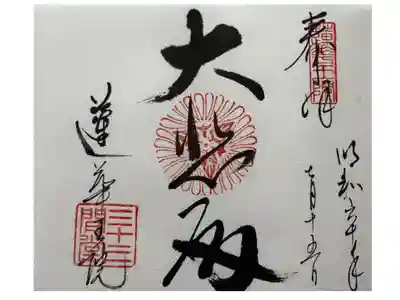 奉拝
昭和六十年
月十五日
大悲殿
蓮華王院
三十三間堂